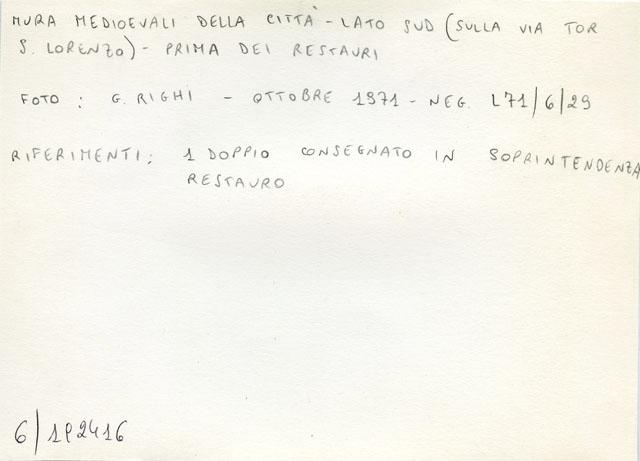 MURA MEDIOEVALI DELLA CITTÀ - LATO SUD (SULLA VIA TOR
S. LORENZO) - PRIMA DEI RESTAURI
FOTO : G. RIGHI - OTTOBRE 1971 - NEG. L71/6/29
RIFERIMENTI: 1 DOPPIO CONSEGNATO IN SOPRINTENDENZA
RESTAURO
6/1P2416